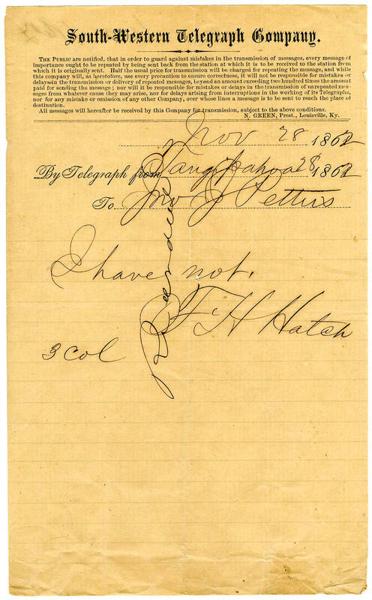 South-Western Telegraph Company.
THE PUBLIC are notified, that in order to guard against mistakes in the transmission of messages, every message of
importance ought to be repeated by being sent back from the station at which it is to be received to the station from
which it is originally sent. Half the usual price for transmission will be charged for repeating the message, and while
this company will, as heretofore, use every precaution to ensure correctness, it will not be responsible for mistakes or
delays in the transmission or delivery of repeated messages, beyond an amount exceeding two hundred times the amount
paid for sending the message; nor will it be responsible for mistakes or delays in the transmission of unrepeated mes-
sages from whatever cause they may arise, nor for delays arising from interruptions in the working of its Telegraphs,
nor for any mistake or omission of any other Company, over whose lines a message is to be sent to reach the place of
destination.
All messages will hereafter be received by this Company for transmission, subject to the above conditions.
N. GREEN, Prest., Louisville, Ky.
Nov 28 1862
By Telegraph from Tangipahoa 28 1862
To Jno J Pettus
I have not.
F H Hatch
3 Col